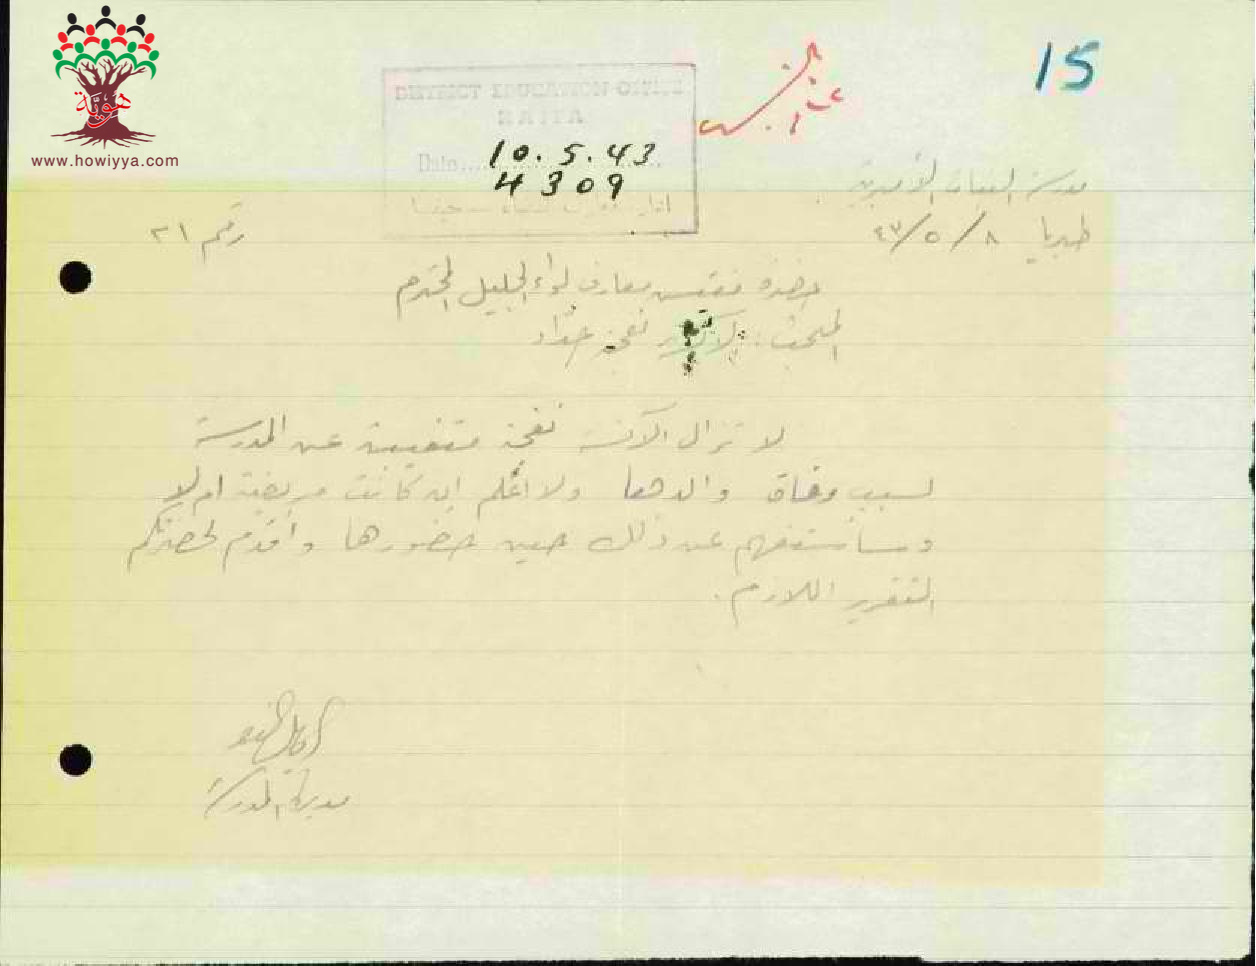 هوية
www.howiyya.com
15
DISTRICT EDUCATION OFFICE
HAIFA
Date 10.5.43
4309
مدرسة البنات الأميرية
طبريا ٨/٥/٤٣
رقم ٢١
حضرة مفتش معارف لواء الجليل المحترم
المبحث: الآنسة نعمة حداد
لا تزال الآنسة نعمة متغيبة عن المدرسة
لسبب وفاة والدها ولا اعلم ان كانت مريضة ام لا
وسأستفهم عن ذلك حين حضورها واقدم لحضرتكم
التقرير اللازم.
مديرة المدرسة